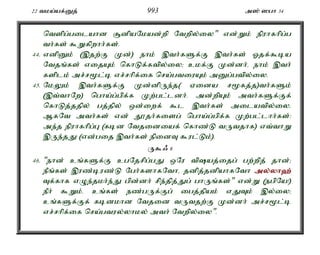 22 வமய்யக்னுத் 993 அஸ் ஸபா 34
வெளிப்படையான சூனியமேயன்றி வேறில்லை" என்றும் நிராகரிப்ப
வர்கள் கூறுகிறார்கள்.
44. எனினும் (இதற்கு முன்) நாம் இவர்களுக்கு இவர்கள் ஓதக்கூடிய
வேதங்கள் எதையும் கொடுக்கவில்லை; உமக்கு முன்னர், நாம் இவர்
களிடம் அச்சமூட்டி எச்சரிக்கை செய்பவரையும் அனுப்பவில்லை.
45. மேலும் இவர்களுக்கு முன்னிருந்த( ஏனைய சமூகத்த)வர்களும்
(இவ்வாறே) பொய்ப்பிக்க முற்பட்டனர். அன்றியும் அவர்களுக்குக்
கொடுத்ததில் பத்தில் ஒன்றைக் கூட இவர்கள் அடையவில்லை.
ஆகவே அவர்கள் என் தூதர்களைப் பொய்ப்பிக்க முற்பட்டார்கள்;
அந்த நிராகரிப்பு (கடின வேதனையைக் கொண்டு வருவதாக) எவ்வாறு
இருந்தது (என்பதை இவர்கள் நினைவு கூரட்டும்).
ருகூஃ 6
46. "நான் உங்களுக்கு உபதேசிப்பது ஒரே விஷயத்தைப் பற்றித் தான்;
நீங்கள் இரண்டிரண்டு பேர்களாகவோ, தனித்தனியாகவோ அல்லாஹ்
வுக்காக எழுந்தமர்ந்து பின்னர் சிந்தித்துப் பாருங்கள்" என்று (நபியே!)
நீர் கூறும். உங்கள் நண்பருக்குப் பைத்தியம் எதுவும் இல்லை;
உங்களுக்குக் கடினமான வேதனை வருவதற்கு முன்னர் அச்சமூட்டி
எச்சரிக்கை செய்பவரல்லாமல் அவர் வேறில்லை".